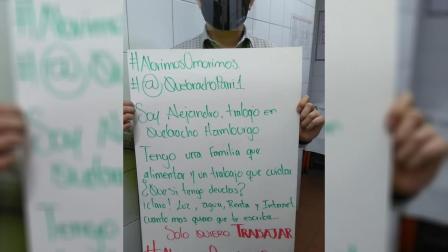 #AbrimosOmorimos
#@QuebrachoPari1
Soy Alejandro, trabajo en
Quebracho Hamburgo
Tengo una familia que
alimentar y un trabajo que cuidar
¿Que si tengo deudas?
¡Claro! Luz, agua, Renta y Internet,
cuanto mas quiero que te escriba...
Solo quiero TRABAJAR